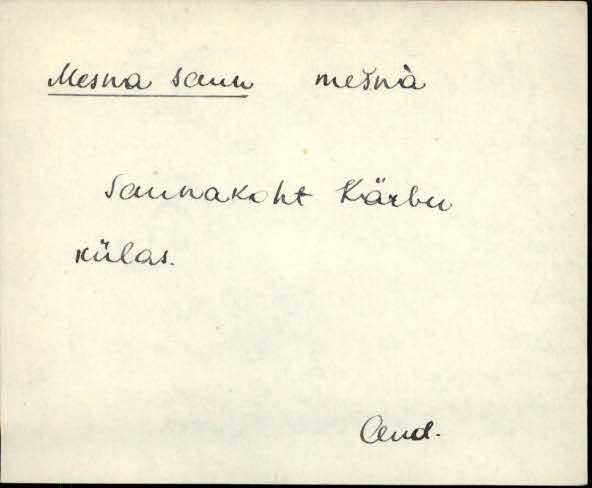 Mesna saun mešnà
Saunakoht Kärbu
külas.
And.